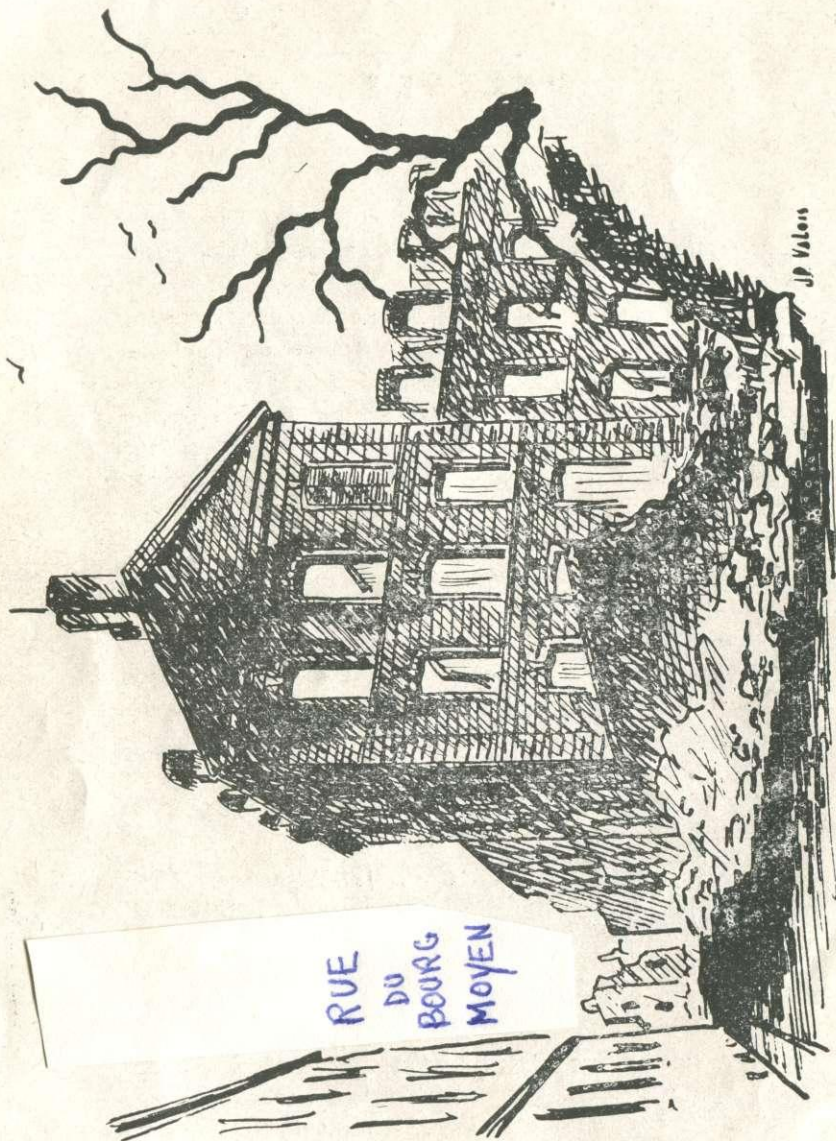 RUE
DU
BOURG
MOYEN
JP Valois